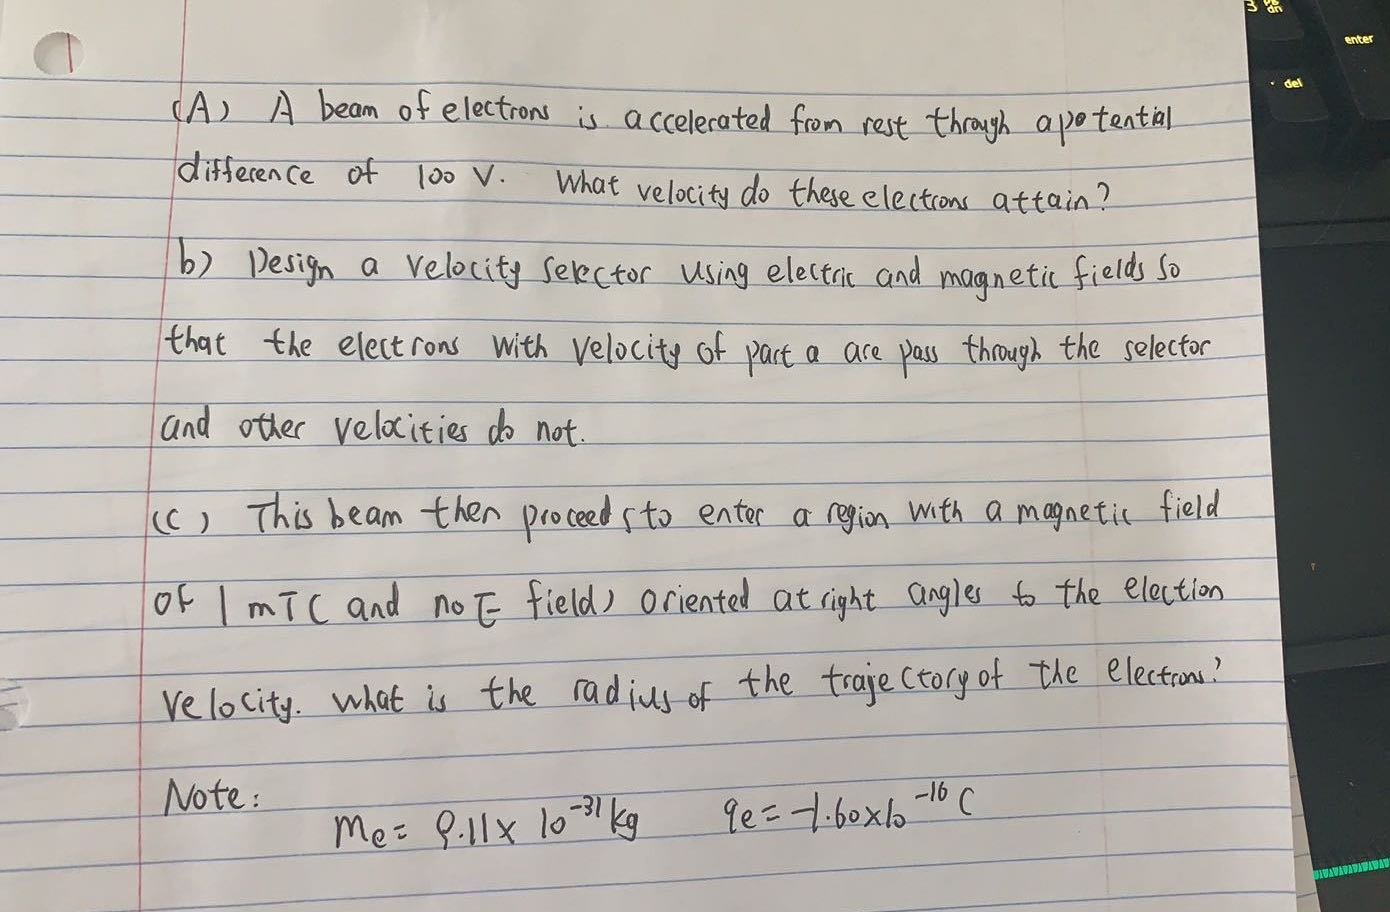 (A) A beam of electrons is accelerated from rest through a potential
difference of 100 V. What velocity do these electrons attain?
b) Design a velocity selector using electric and magnetic fields so
that the electrons with velocity of part a are pass through the selector
and other velocities do not.
(C) This beam then proceeds to enter a region with a magnetic field
of 1 mT (and no E field) oriented at right angles to the election
velocity. what is the radius of the trajectory of the electrons?
Note:
me = 9.11 x 10^-31 kg qe = -1.60x10^-16 C
enter
del
3